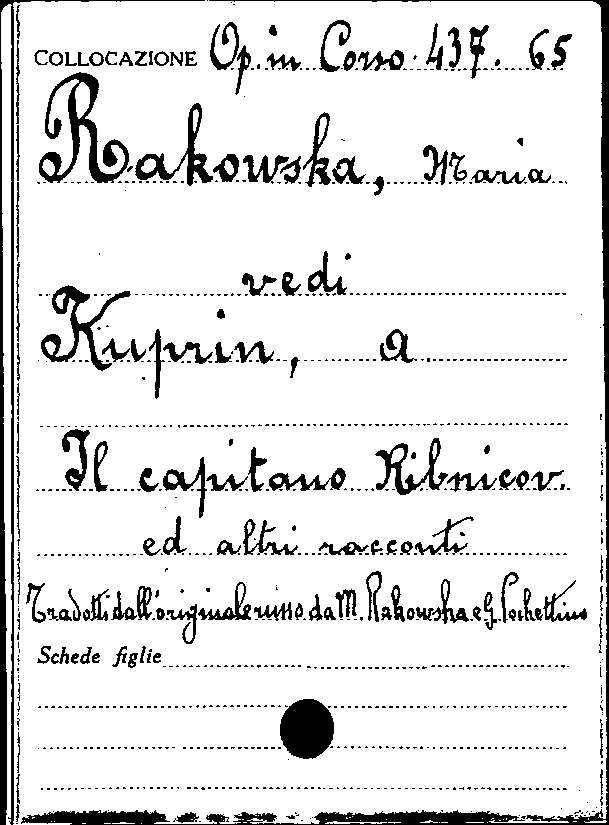 COLLOCAZIONE Op. in Corso. 437. 65
Rakowska, Maria
vedi
Kuprin, A
Il capitano Ribnicov.
ed altri racconti
Tradotti dall'originale russo da M. Rakowska e G. Pochettino
Schede figlie